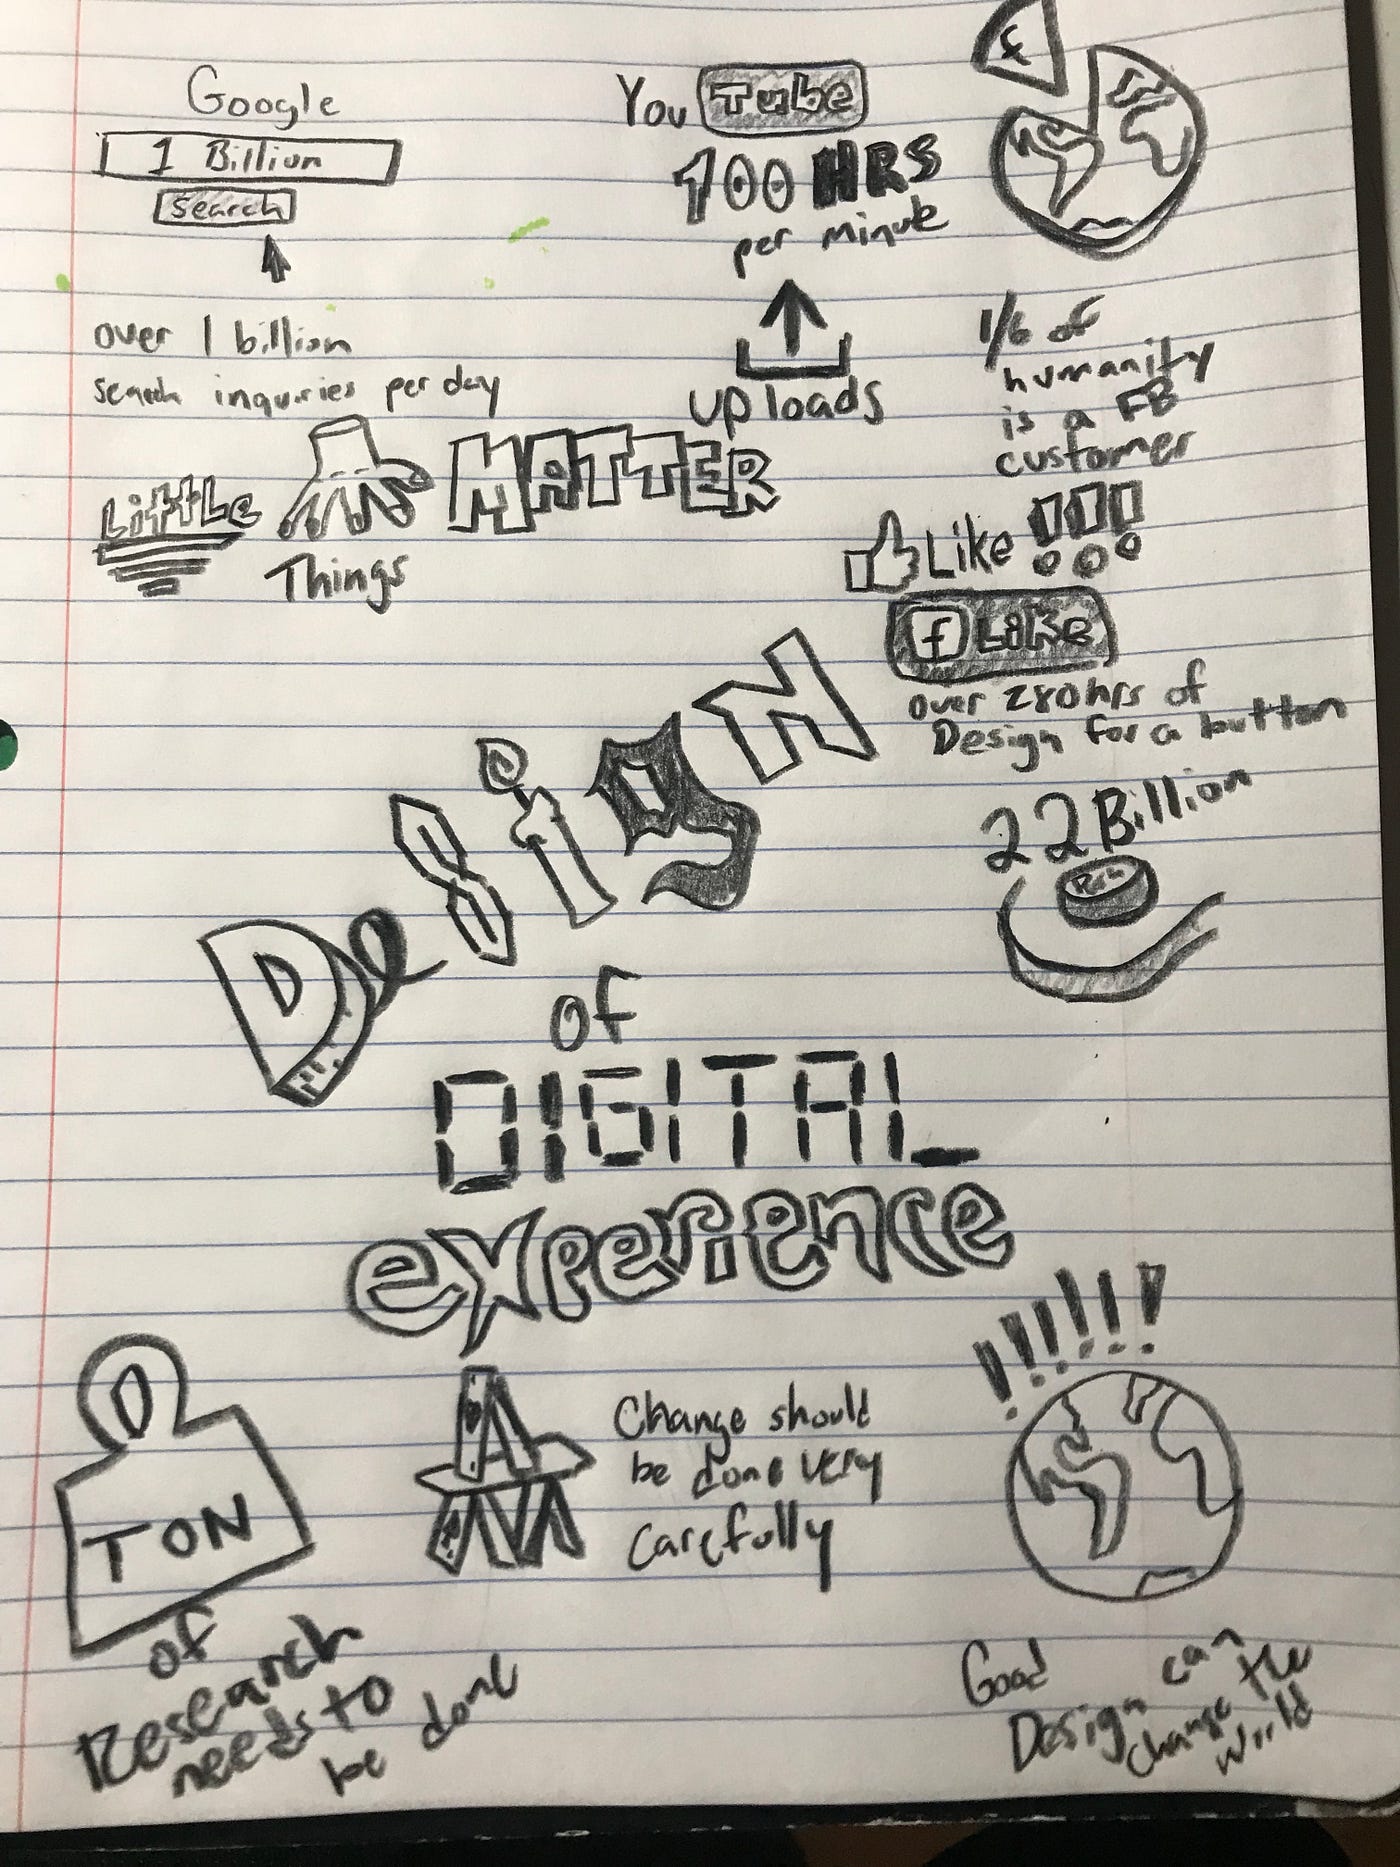 Google
1 Billion
Search
over 1 billion
search inquiries per day
You Tube
100 HRS
per minute
uploads
f
1/6 of
humanity
is a FB
customer
Little MATTER
Things
Like !!!
f Like
over 280 hrs of
Design for a button
22 Billion
Push
Design
of
DIGITAL
experience
TON
of
Research
needs to
be done
Change should
be done very
carefully
!!!!!!
Good
Design can
change the
world